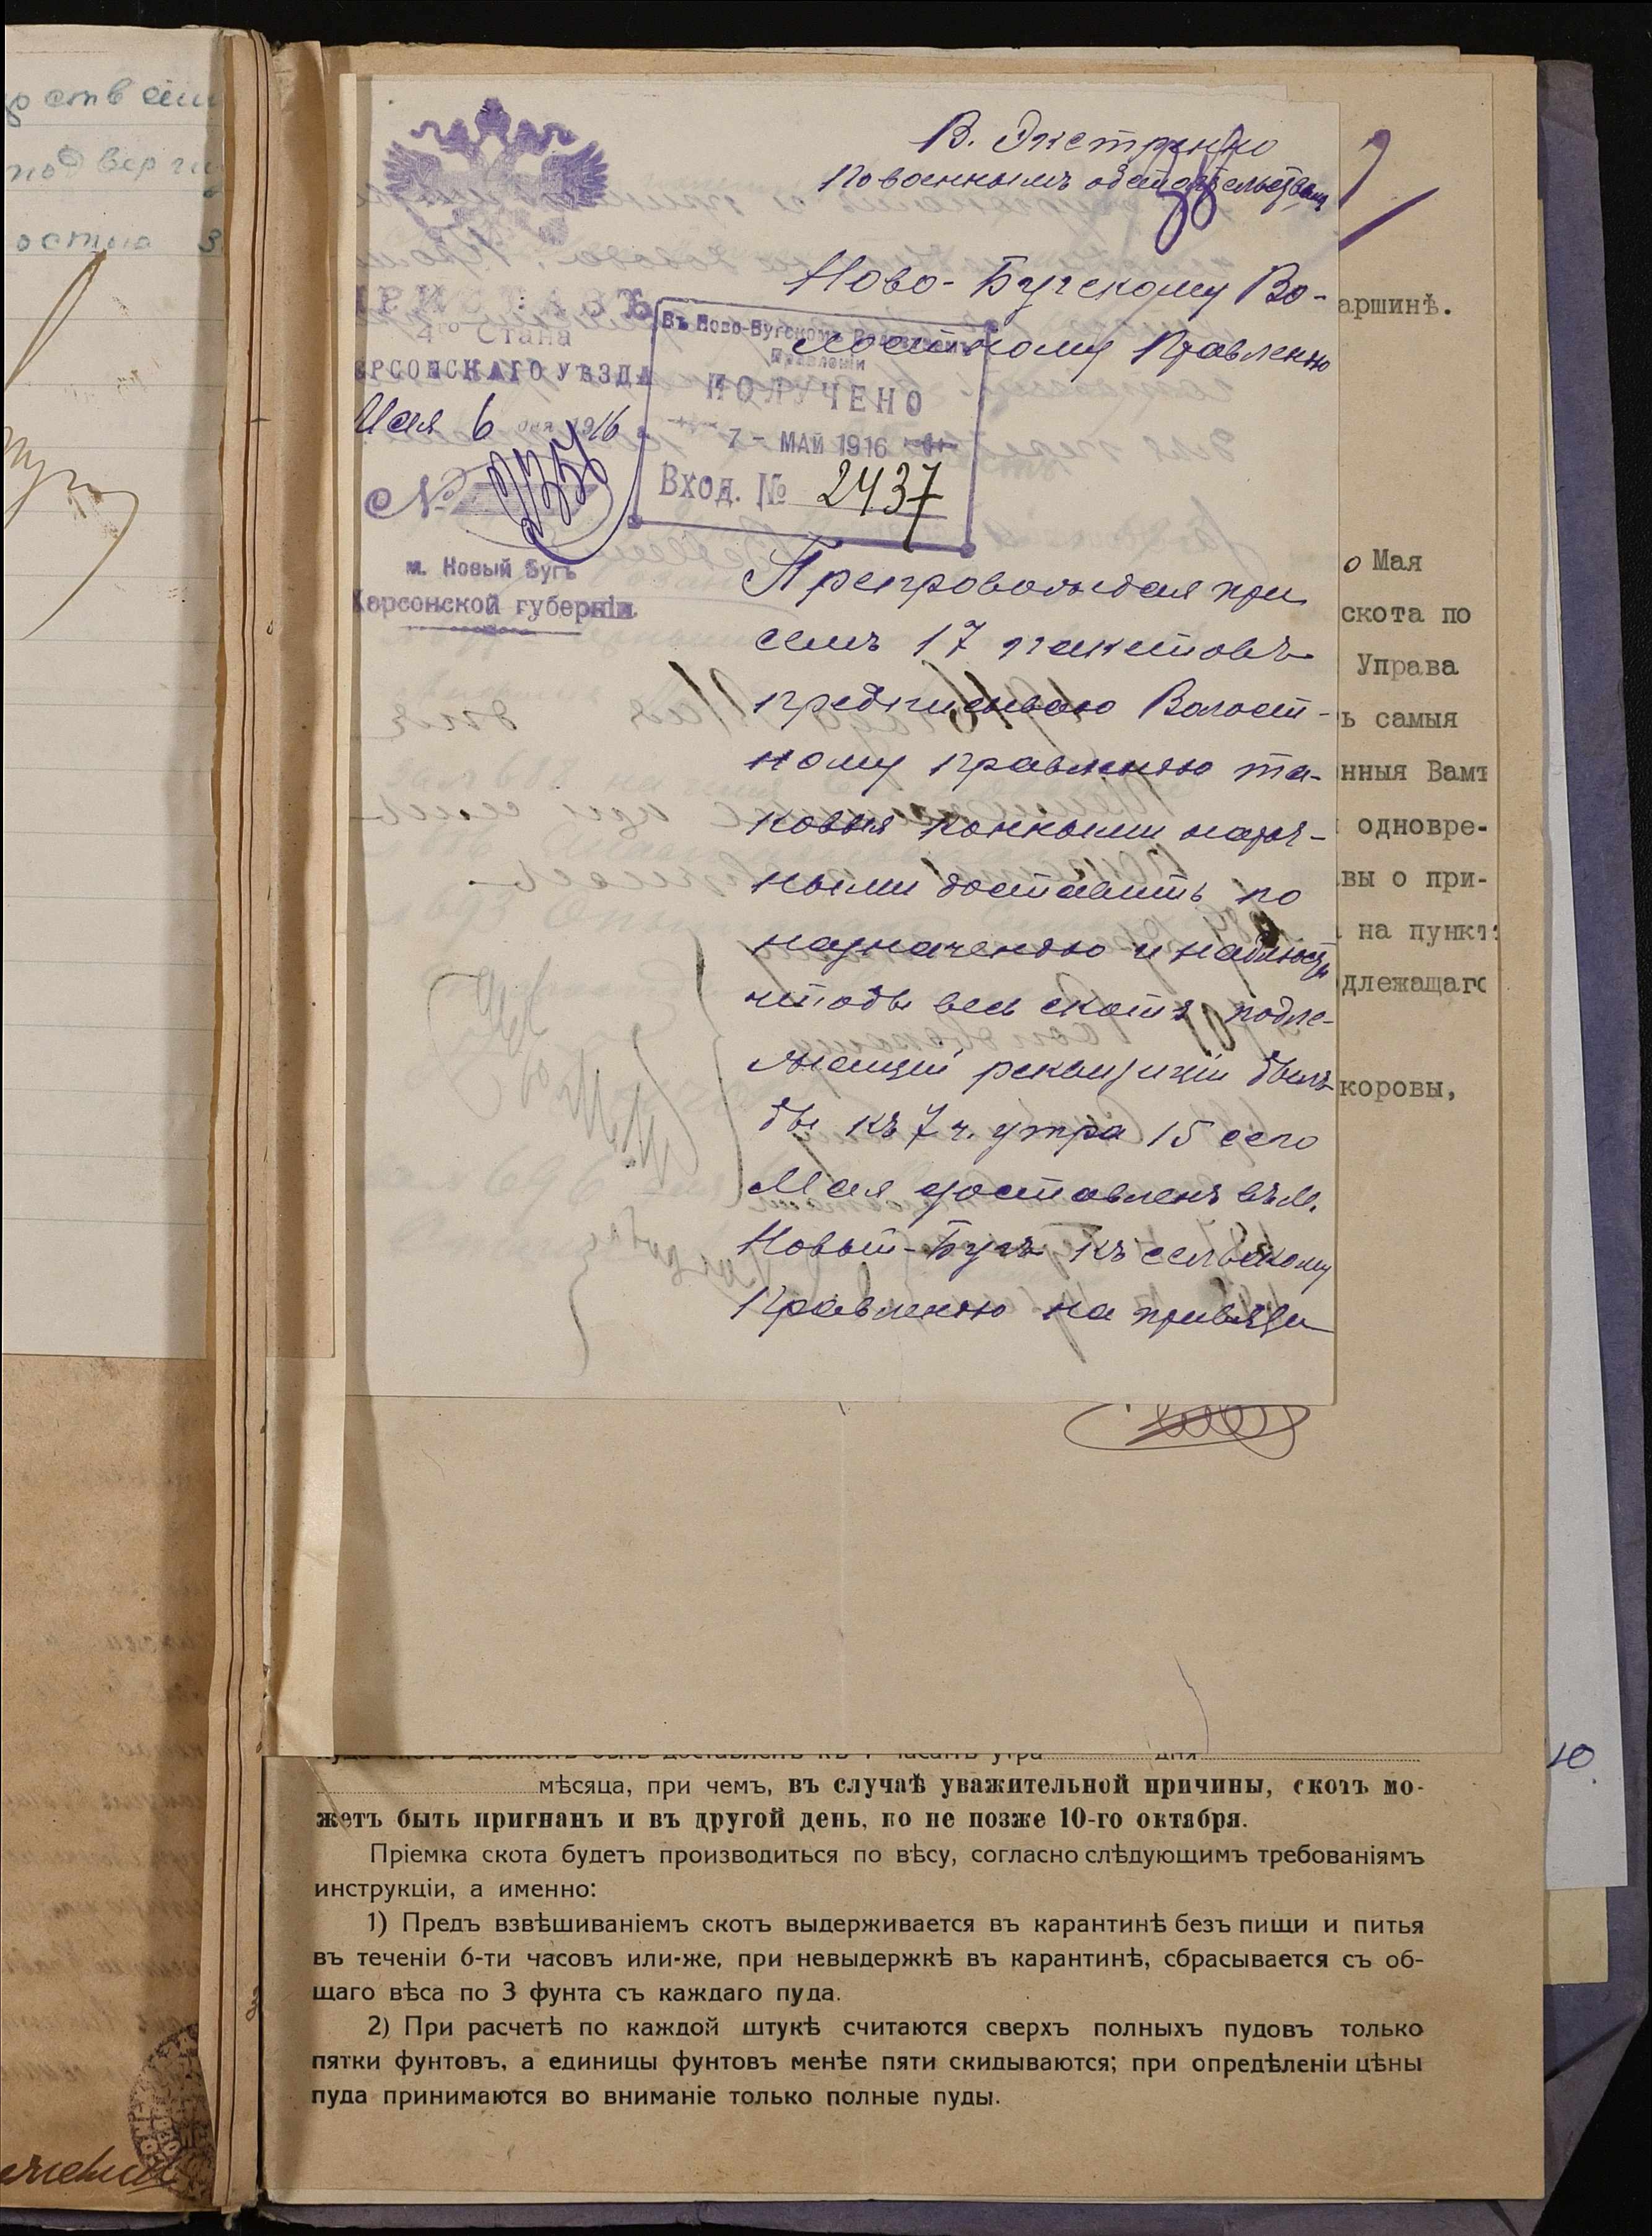 В. Экстренно
По военнымъ обстоятельствамъ
Ново-Бугскому Во-
лостному Правленію
ПРИСТАВЪ
4го Стана
ХЕРСОНСКАГО УѢЗДА
Мая 6 дня 1916
№
м. Новый Бугъ
Херсонской губерніи
Въ Ново-Бугскомъ Волостномъ
Правленіи
ПОЛУЧЕНО
7 - МАЙ 1916
Вход. № 2437
Препровождая при
семъ 17 пакетовъ
предписываю Волост-
ному правленію та-
ковыя конными нароч-
ными доставить по
назначенію и наблюсти
чтобы весь скотъ подле-
жащій реквизиціи былъ
бы къ 7 ч. утра 15 сего
Мая доставленъ въ м.
Новый-Бугъ къ сельскому
Правленію на привязи
аршинѣ.
о Мая
скота по
Управа
ь самыя
нныя Вамъ
одновре-
вы о при-
на пункт
длежащаго
коровы,
куда скотъ долженъ быть доставленъ къ 7 часамъ утра дня
мѣсяца, при чемъ, въ случаѣ уважительной причины, скотъ мо-
жетъ быть пригнанъ и въ другой день, но не позже 10-го октября.
Пріемка скота будетъ производиться по вѣсу, согласно слѣдующимъ требованіямъ
инструкціи, а именно:
1) Предъ взвѣшиваніемъ скотъ выдерживается въ карантинѣ безъ пищи и питья
въ теченіи 6-ти часовъ или-же, при невыдержкѣ въ карантинѣ, сбрасывается съ об-
щаго вѣса по 3 фунта съ каждаго пуда.
2) При расчетѣ по каждой штукѣ считаются сверхъ полныхъ пудовъ только
пятки фунтовъ, а единицы фунтовъ менѣе пяти скидываются; при опредѣленіи цѣны
пуда принимаются во вниманіе только полные пуды.